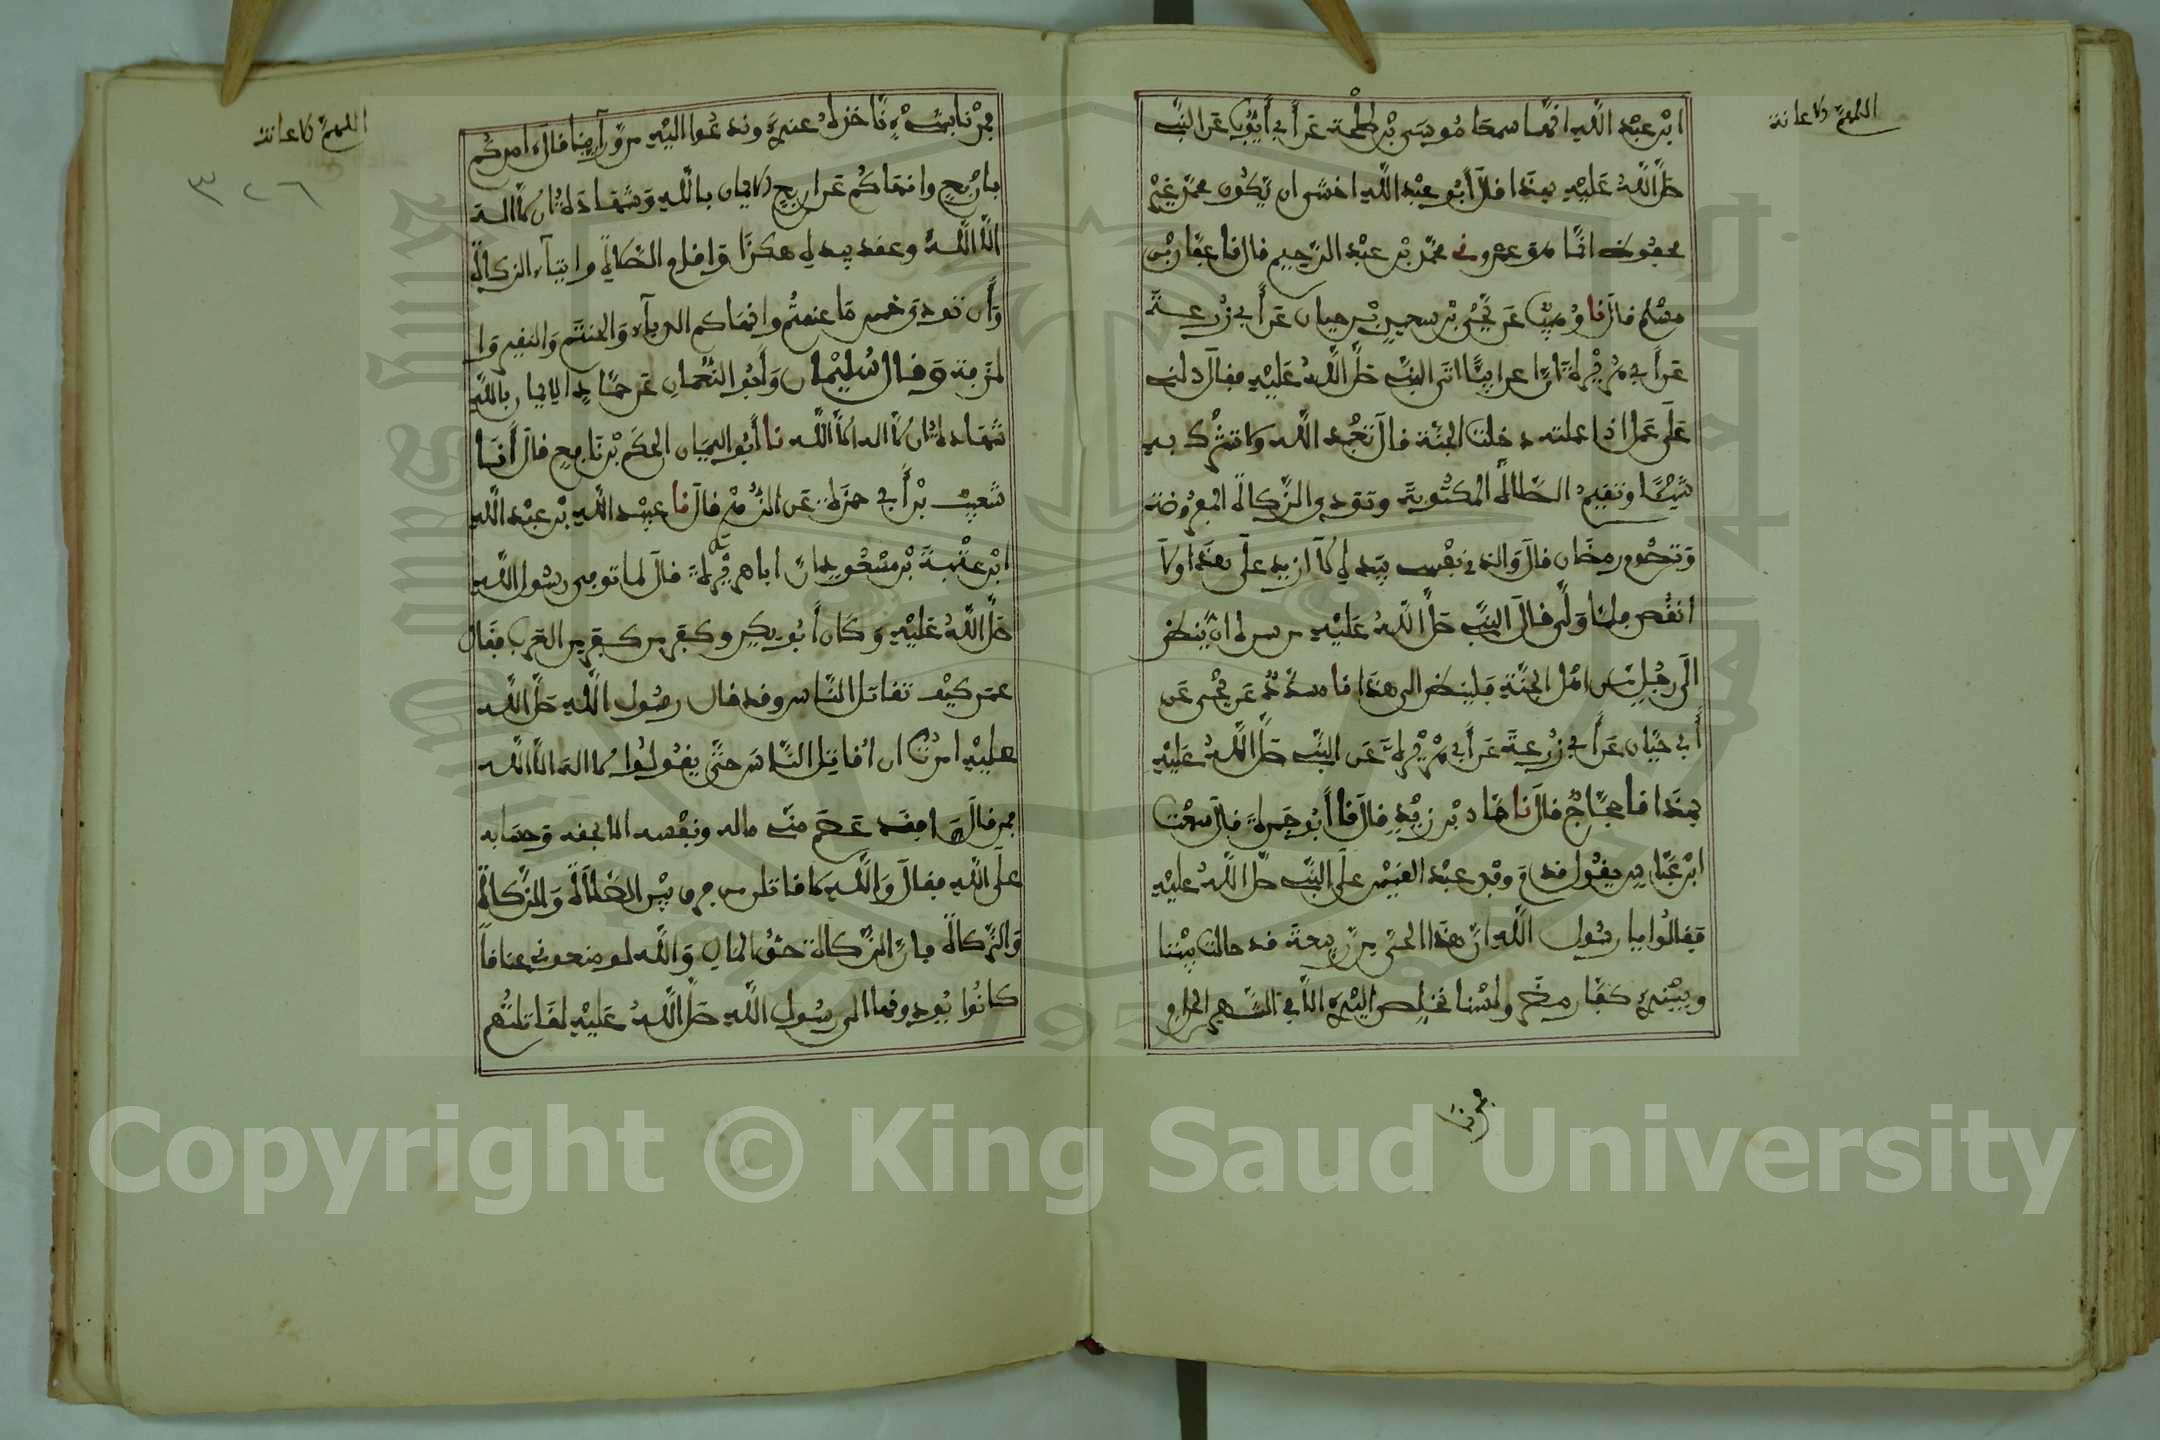 اللهم الاعانة
ابْن عبْد اللَّه انهما سمعا مُوسَى بْن طلْحة عَن أَبي أَيُّوب عَن النَّبي
صَلَّى اللَّهُ عَلَيْهِ بهَذَا قالَ أَبُو عبْد اللَّه اخشى ان يَّكُون محمّد غيْر
محفوظ انَّما هو عمرو نى محمّد بْن عبْد الرَّحيم قال نا عفَّان بْن
مسْلم قالَ نا وُهيْب عَن يَحْيَى بْن سعيدِ بْن حيان عَن أَبي زُرعة
عَن أَبي هُرَيْرةَ أَنَّ اعرابيًّا اتى النبي صَلَّى اللَّهُ عَلَيْهِ فقالَ دلنى
عَلَى عَمل اذا عملته دخلت الجنَّة قالَ تعْبُد اللَّه ولا تشْرك به
شيْئًا وتقيمُ الصَّلاةَ المكتُوبةَ وتودى الزَّكاةَ المفرُوضة
وَتصُوم رمضَان قالَ وَالذى نفْسى بيَده لا ازيد علَى هذا ولا
انقُص فلمَّا وَلَّى قالَ النبي صَلَّى اللَّهُ عَلَيْهِ من سره ان يَّنظر
الَى رجُل مِّن اهْل الجنَّةِ فَلينظر الى هذَا نا مسدَّدٌ عَن يحْيى عَن
أَبي حيَّان عَن أَبي زُرْعةَ عَن أَبي هُرَيْرةَ عَن النبي صَلَّى اللَّهُ عَلَيْهِ
بهَذَا نا حجَّاجٌ قالَ نا حمَّاد بْن زيْدٍ قالَ نا أَبُو جَمرةَ قالَ سمعْت
ابْن عبَّاس يقُول قدم وَفد عبْد القيْس علَى النبي صَلَّى اللَّهُ عليْهِ
فقالُوا يا رسُول اللَّه انَّ هذَا الحىّ من رَّبيعةَ قد حالت بيْننا
وبيْنك كفَّار مضَر ولسْنا نخلص اليْك الَّا في الشَّهر الحرام
فمرنا
اللهم الاعانة
٣٢٦
فمرْنا بشىْءٍ نَّاخذهُ عنك وندعُوا اليْه من وَّرآءنا قالَ ءامركُم
باربَع وانهاكُم عَن اربع الايمان باللَّه وَشَهَادَة ان لا اله
الَّا اللَّهُ وعقد بيده هكذَا وَاقام الصَّلاةِ وايتآء الزكاةِ
وَأَن تودوا خمس مَا غنمتُم وانهاكم الدبآء وَالحنتَم وَالنقير وَا
لمزفت وَقال سُليْمان وَأَبُو النُّعمان عَن حمَّادٍ الايمان باللَّهِ
شَهَادة ان لا اله الا اللَّه نا أَبُو اليمَان الحكَم بْن نَافعٍ قالَ أَنَا
شعيْب بْن أَبي حمزَة عَن الزُّهْرى قالَ نا عبيْد اللَّه بْن عبْد اللَّه
ابْن عتْبةَ بْن مسْعُودٍ انَّ ابا هريْرةَ قالَ لما توفى رسُول اللَّه
صَلَّى اللَّهُ عَلَيْهِ وَكَان أَبُو بكر وكفر من كفر من العَرب فقَالَ
عمَر كيْف تقاتل النَّاس وقد قال رسُول اللَّهِ صَلَّى اللَّه
عليْهِ امرْتُ ان اُقاتِل النَّاسَ حتَّى يقُولُوا لا اله الا اللَّه
فمن قالَهَا فقَد عَصَم منّى ماله ونفْسه الا بحقه وَحسَابه
علَى اللَّهِ فقالَ وَاللَّه لا قاتلن من فرق بيْن الصَّلاةِ وَالزَّكاةِ
وَالزَّكاةَ فانَّ الزَّكاة حقُّ المَال وَاللَّه لو منعونى عناقاً
كانُوا يُودونها الى رسُول اللَّهِ صَلَّى اللَّهُ عَلَيْهِ لقَاتلتُهم
Copyright © King Saud University